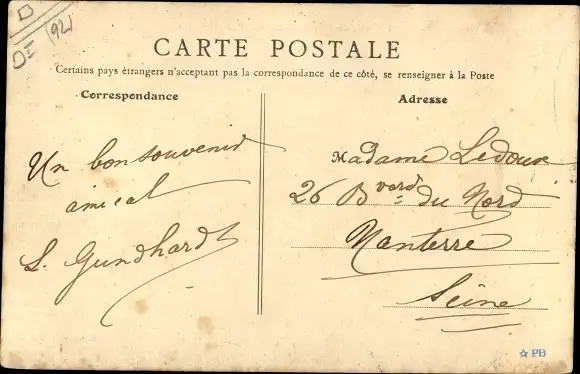 D
DI
1921
CARTE POSTALE
Certains pays étrangers n'acceptant pas la correspondance de ce côté, se renseigner à la Poste
Correspondance
Un bon souvenir
amical
L. Gundhardt
Adresse
Madame Ledoux
26 Bvard du Nord
Nanterre
Seine
☆ PB